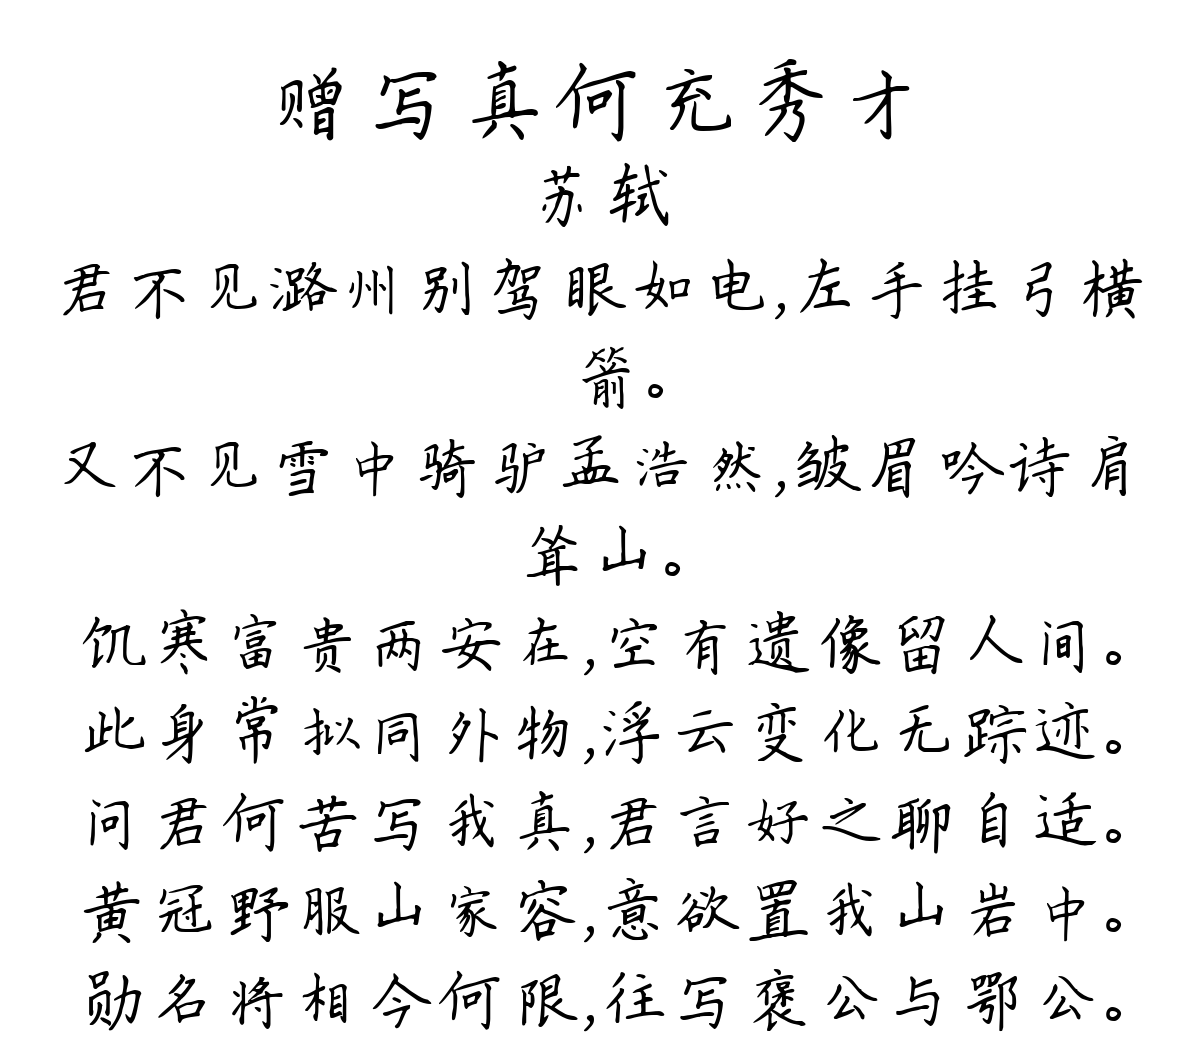 赠写真何充秀才
苏轼
君不见潞州别驾眼如电,左手挂弓横
箭。
又不见雪中骑驴孟浩然,皱眉吟诗肩
耸山。
饥寒富贵两安在,空有遗像留人间。
此身常拟同外物,浮云变化无踪迹。
问君何苦写我真,君言好之聊自适。
黄冠野服山家容,意欲置我山岩中。
勋名将相今何限,往写褒公与鄂公。